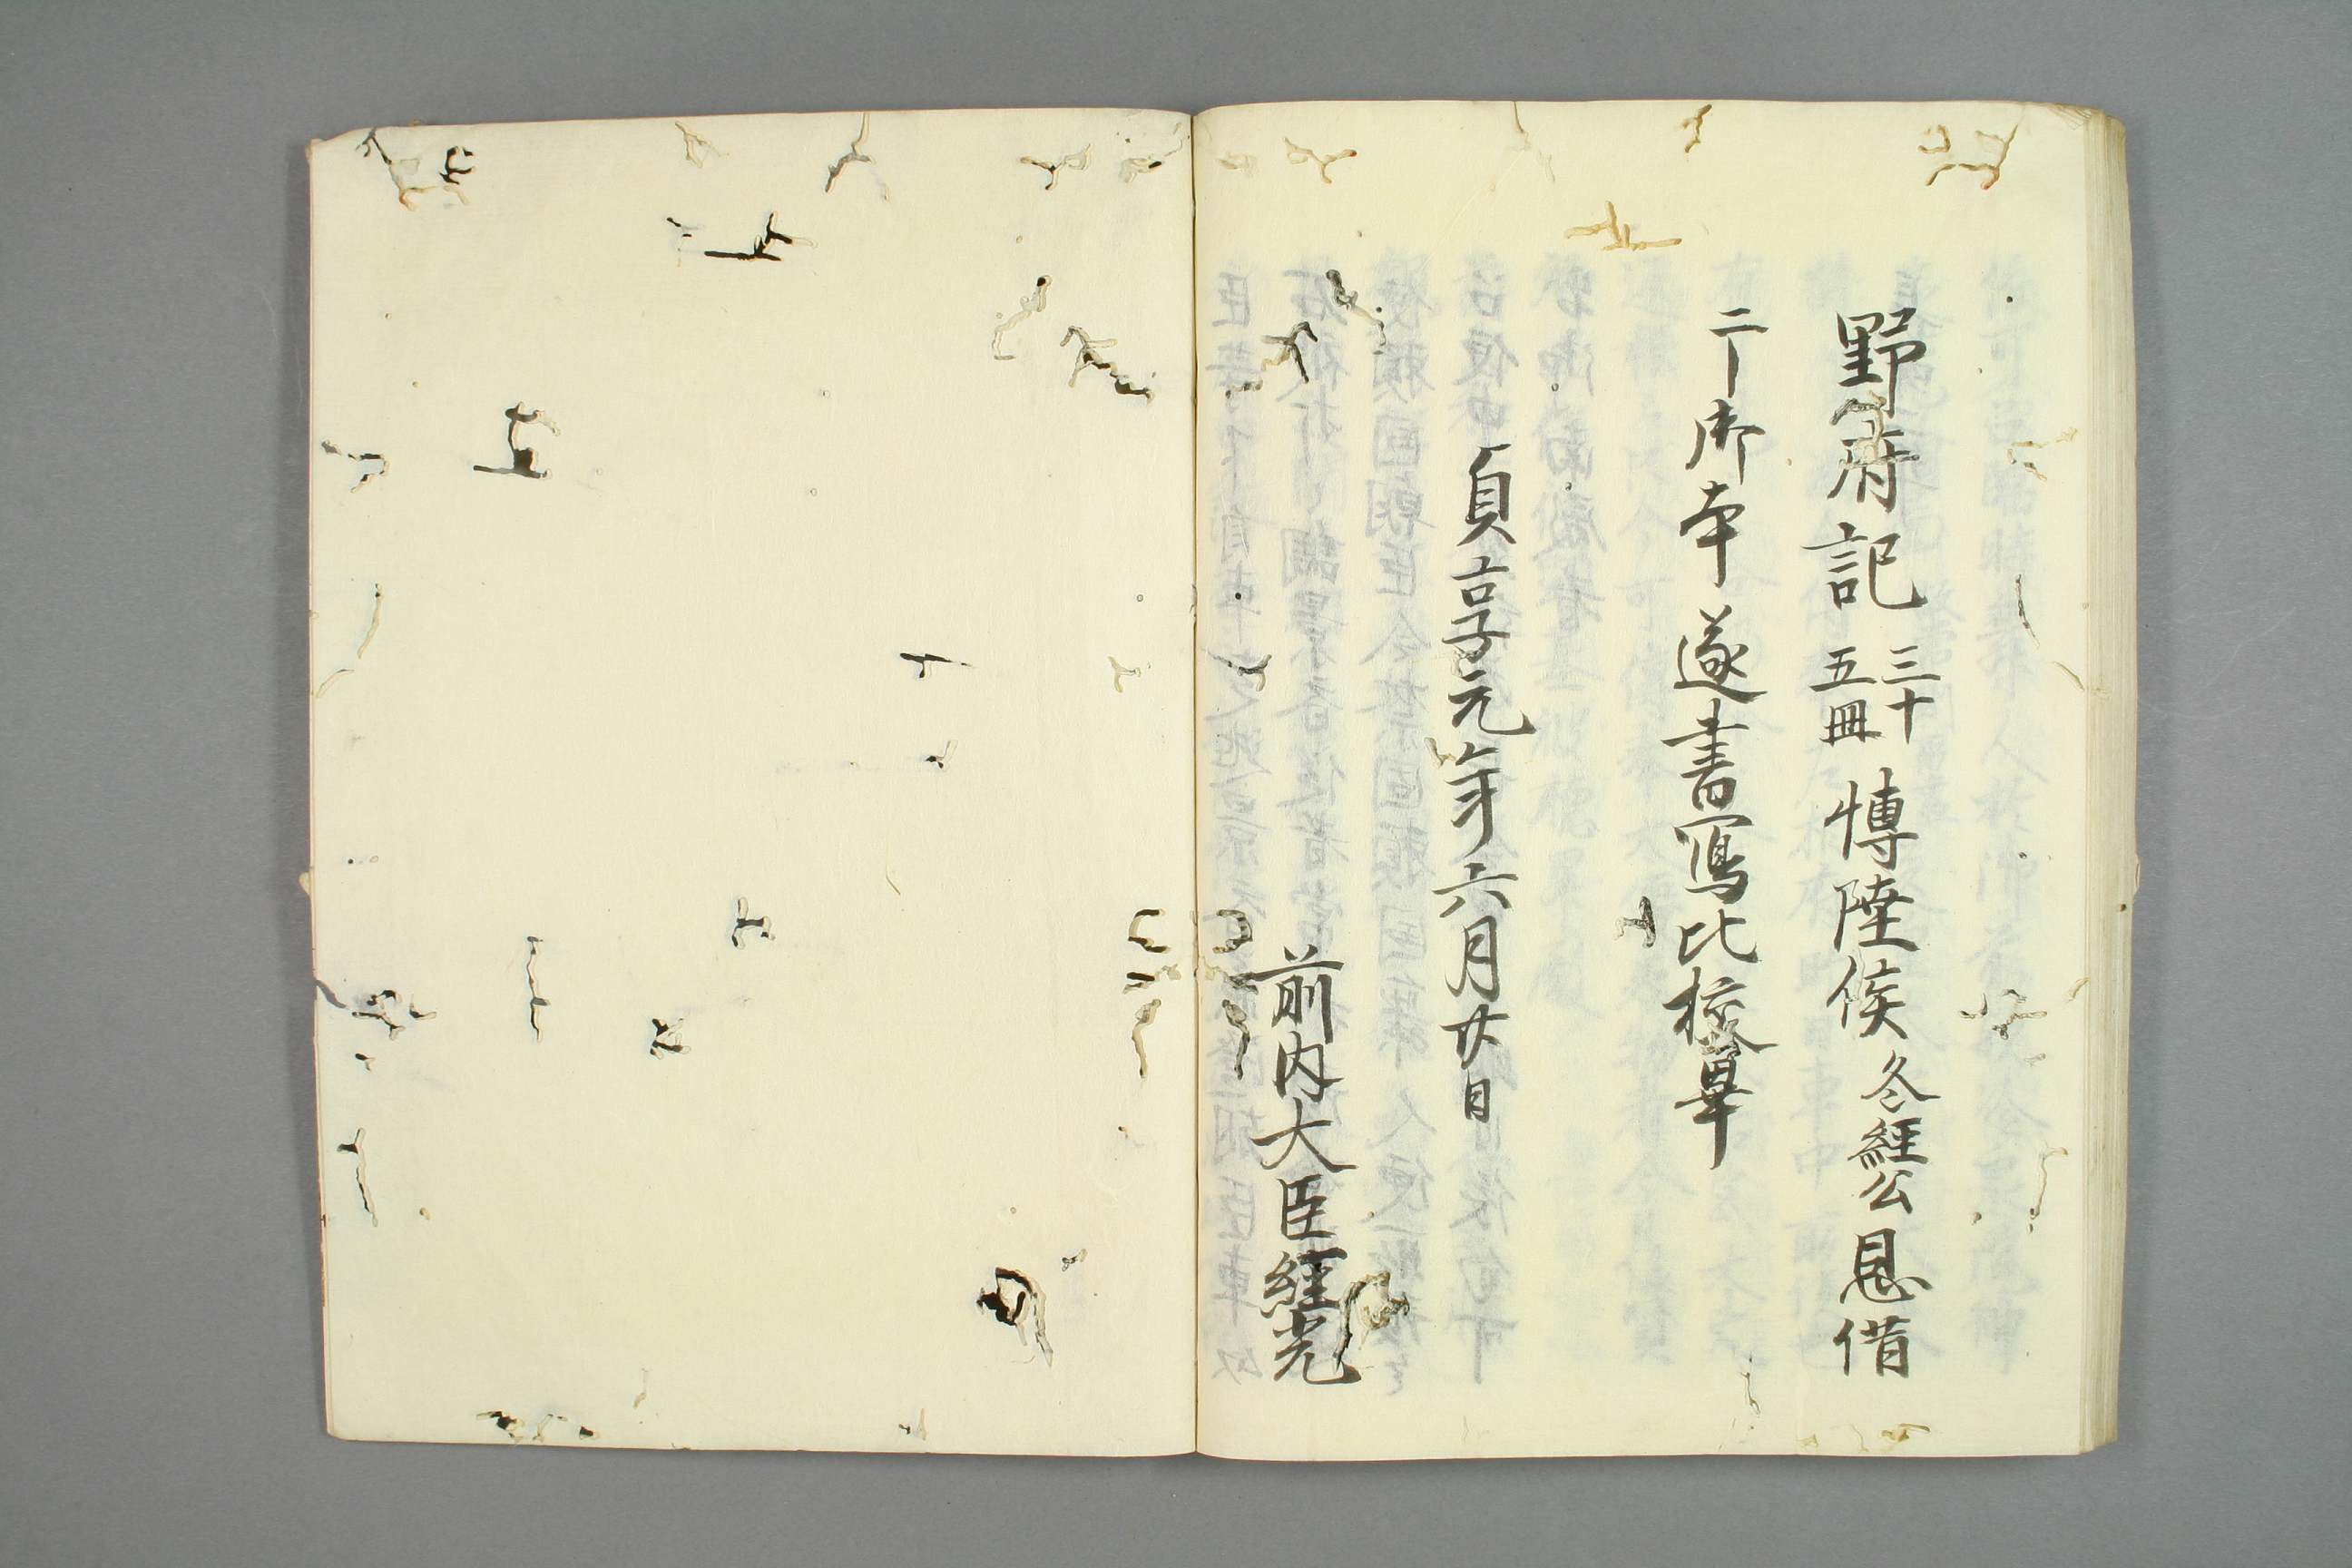 野府記三十五冊愽陸侯冬經公恩借
于御本遂書寫比校畢
貞享元年六月廿日
前内大臣經光